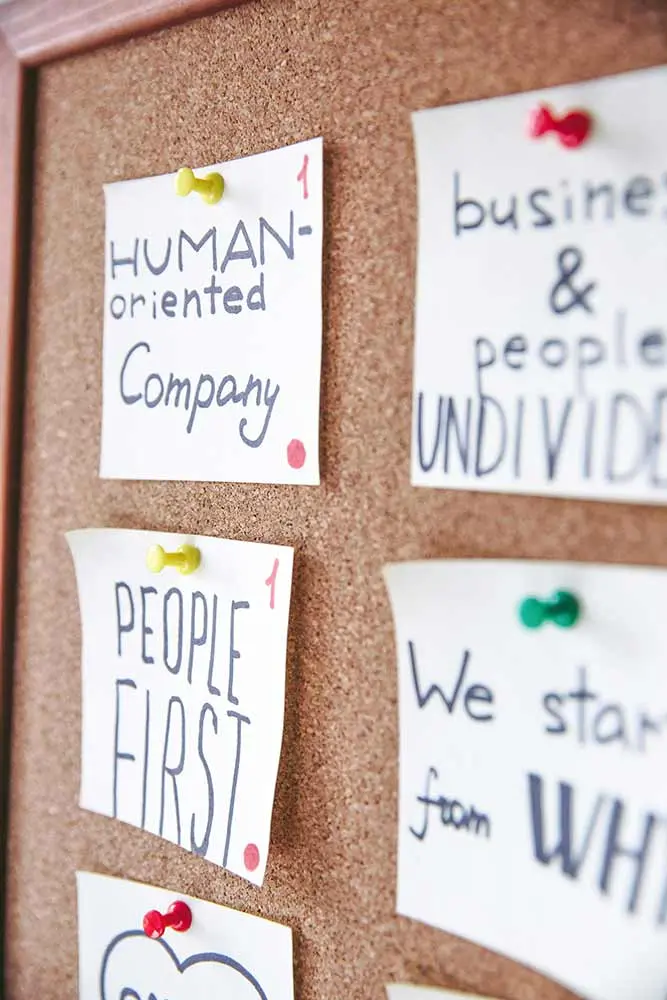 1
HUMAN-
oriented
Company
busine
&
people
UNDIVIDE
1
PEOPLE
FIRST.
We star
from WH